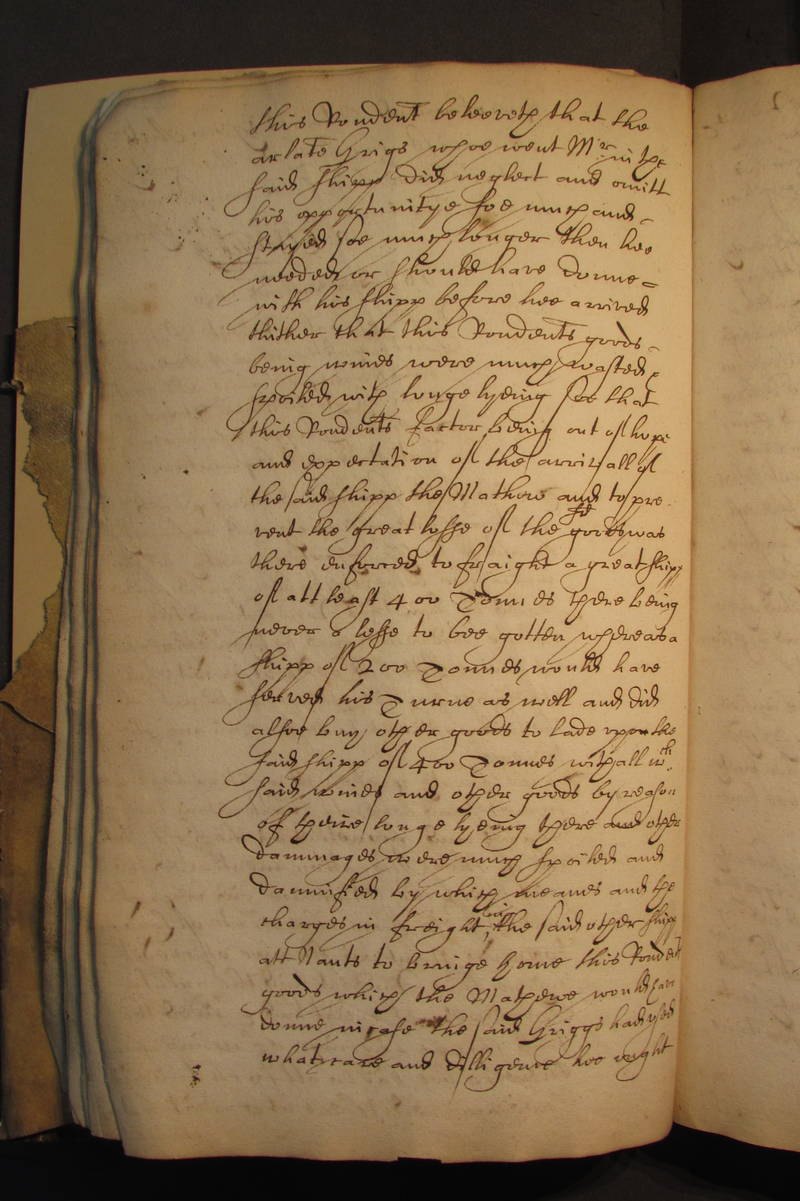 this Rondent beleeveth that the
arlate Grigs whoe went Mr in the
said shipp did neglect and omitt
his opportunitye soe much and
stayed soe much longer then hee
needed or should have donne
with his shipp before hee arrived
thither that this Rondents goods
being wines were much wasted
spoiled with longe lyeing soe that
this Rondents factor being out of hope
and expectation of the arrivall of
the said shipp the Mathew and to pre
vent the great losse of the sd goods was
there enforced to fraight a great shipp
of att least 400 Tonnes there being
never a lesse to bee gotten whereas a
shipp of 200 Tonnes would have
served his Turne as well and did
alsoe buy other goods to lade upon the
said shipp of 400 Tonnes withall wch
said wines and other goods by reason
of theire longe lyeing there and other
dammages were much spoiled and
damnified by which meanes and the
charges in freighting the said other shipp
att Nants to bringe home this Rondents
goods which the Mathewe would have
donne in case the said Griggs had used
what care and dilligence hee might